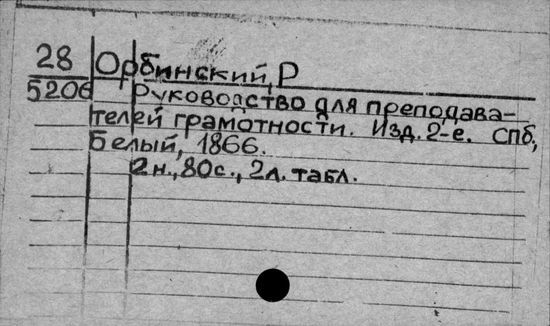 28 Орбинский, Р
5206 Руководство для преподава-
телей грамотности. Изд. 2-е. Спб,
Белый, 1866.
2 н., 80 с., 2 л. табл.